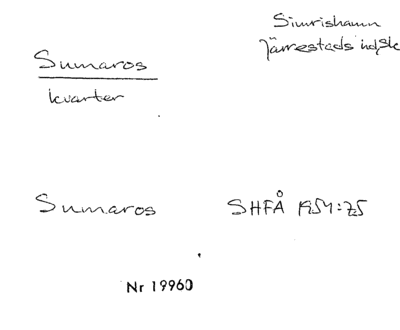 Simrishamn
Järrestads hd, Sk
Sumaros
kvarter
Sumaros SHFÅ 1954:75
Nr 19960